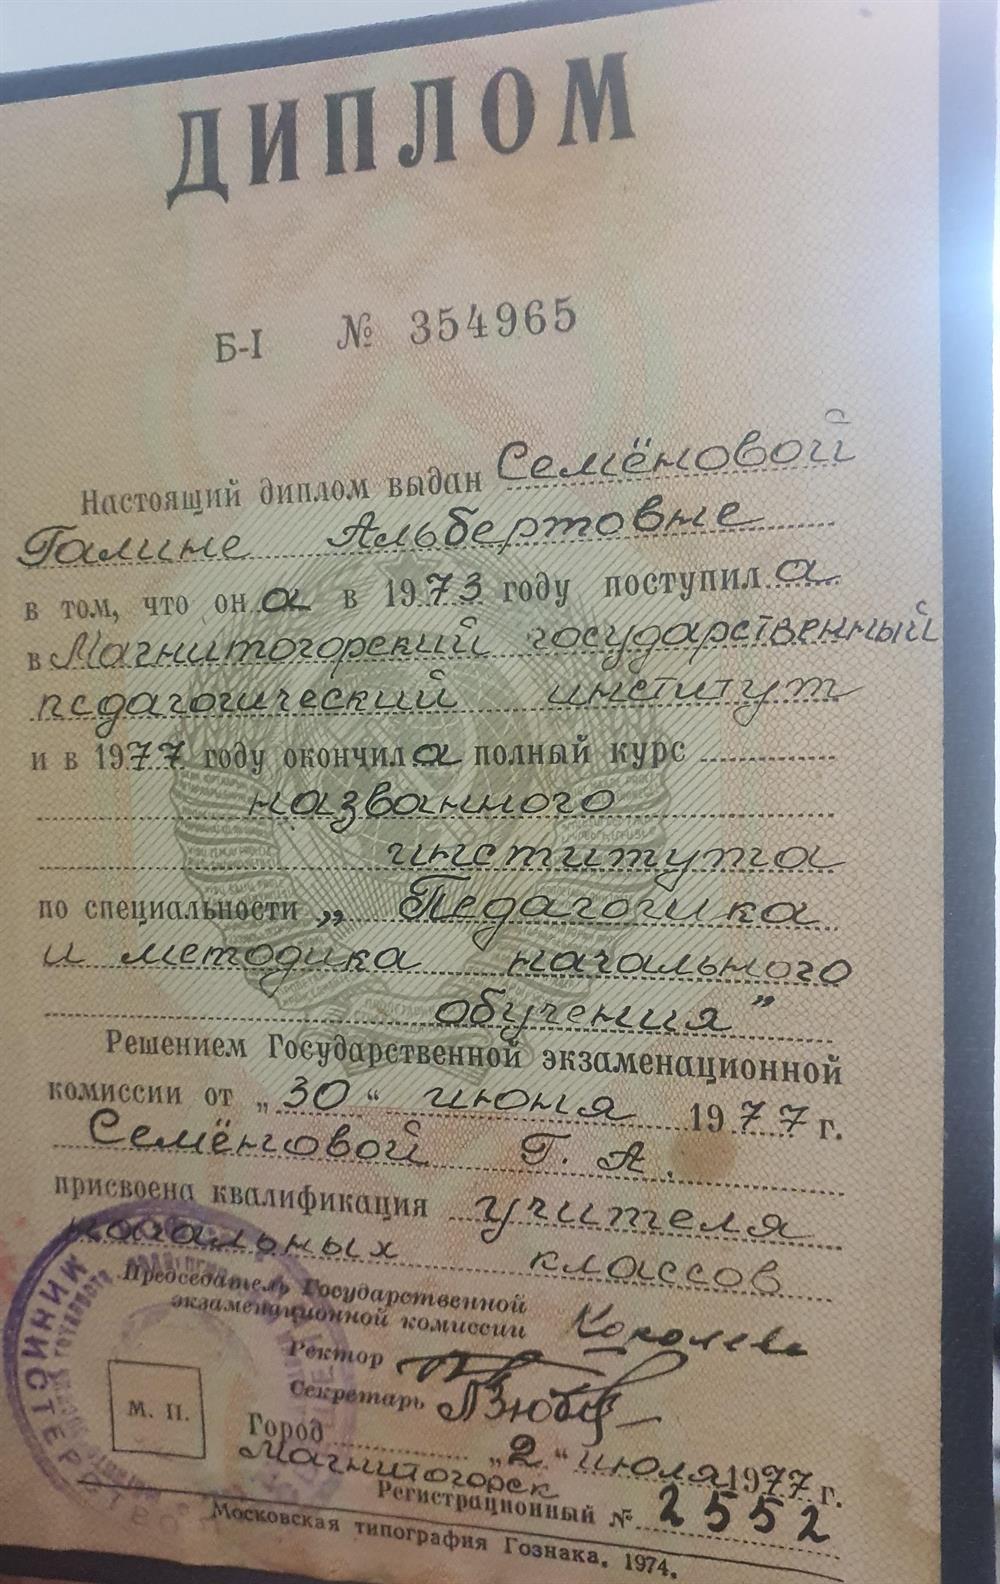 ДИПЛОМ
Б-I № 354965
Настоящий диплом выдан Семёновой
Галине Альбертовне
в том, что она в 1973 году поступила
в Магнитогорский государственный
педагогический институт
и в 1977 году окончила полный курс
названного
института
по специальности „Педагогика
и методика начального
обучения”
Решением Государственной экзаменационной
комиссии от „30“ июня 1977 г.
Семёновой Г. А.
присвоена квалификация учителя
начальных классов
Председатель Государственной
экзаменационной комиссии
Ректор
Секретарь
М. П.
Город „2“ июля 1977 г.
Магнитогорск
Регистрационный № 2552
Московская типография Гознака. 1974.